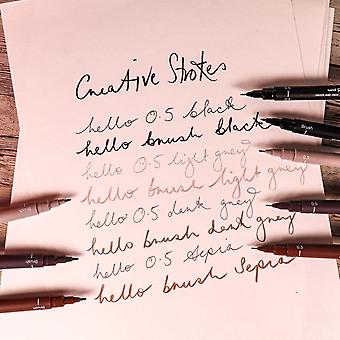 Creative Strokes
hello 0.5 black
hello brush black
hello 0.5 light grey
hello brush light grey
hello 0.5 dark grey
hello brush dark grey
hello 0.5 Sepia
hello brush Sepia
0.5
Brush
0.5
Brush
0.5